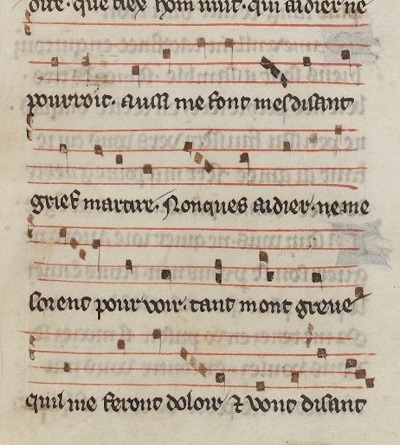 dite. que nex hom muit. qui aidier ne
pourroit. aussi me font mesdisant
grief martire. Nonques aidier. ne me
sorent pour voir. tant mont greue
quil me feront doloir & vont disant